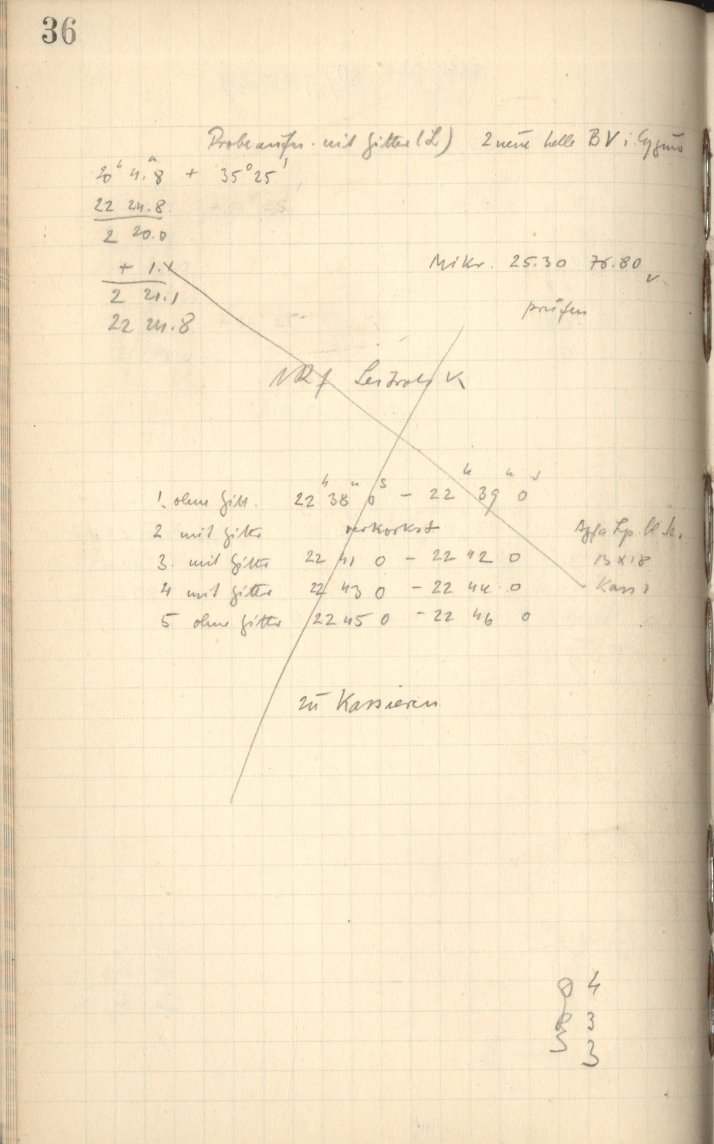 36
Probeaufn. mit Gitter (L) 2 neue helle BV i. Cygnus
20ʰ 4.ᵐ8 + 35°25'
22 24.8
2 20.0
+ 1.1
2 21.1
22 24.8
Mikr. 25.30 76.80
prüfen
K
1. ohne Gitt. 22ʰ 38ᵐ 0ˢ – 22ʰ 39ᵐ 0ˢ
2 mit Gitter verkorkst
3. mit Gitter 22 41 0 – 22 42 0
4 mit Gitter 22 43 0 – 22 44 0
5 ohne Gitter 22 45 0 – 22 46 0
Agfa
13 x 18
Kass
zu Kassieren
4
3
3